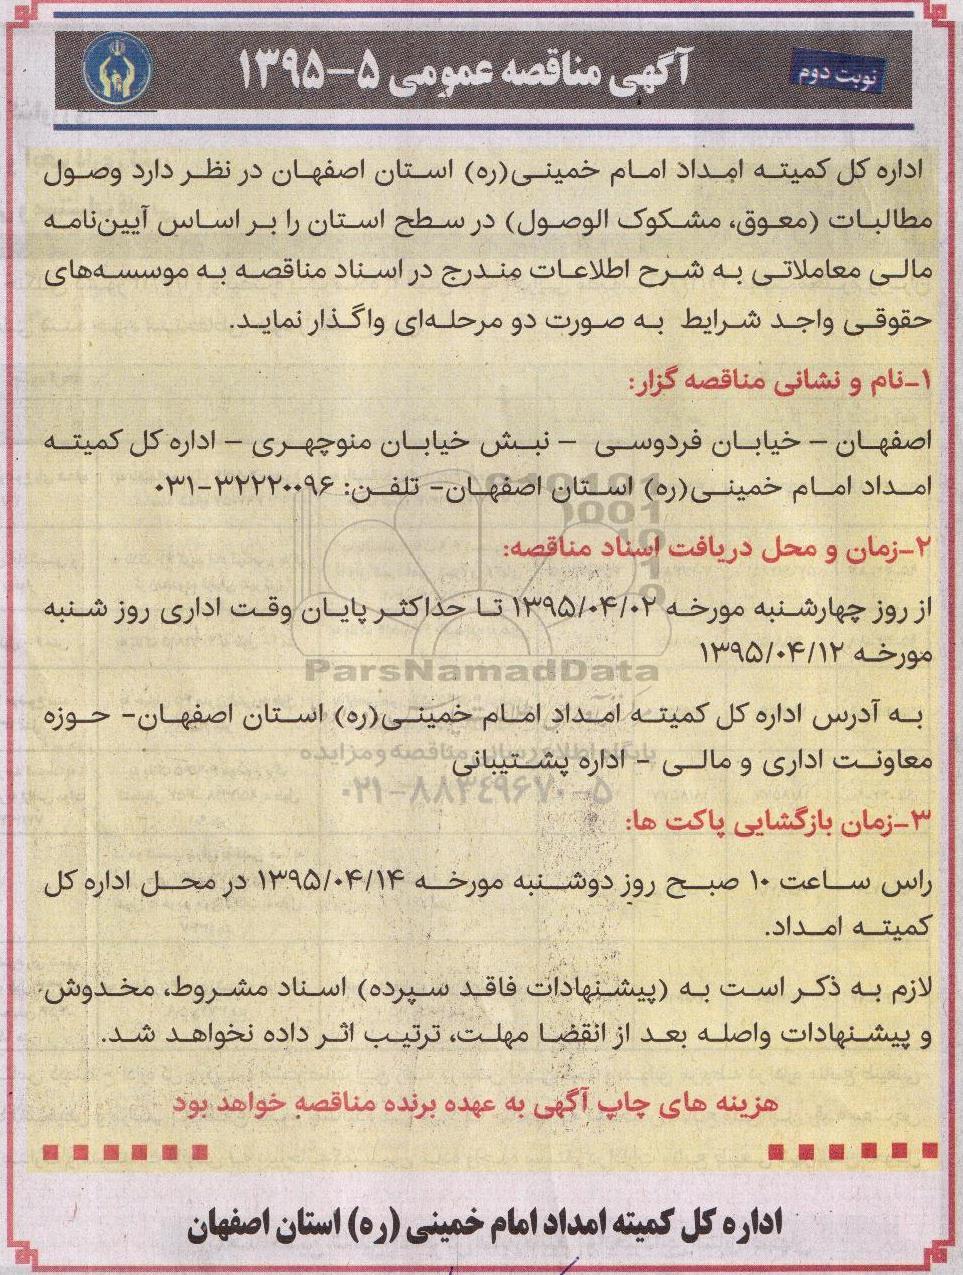 آگهی مناقصه عمومی ۵-۱۳۹۵
نوبت دوم
اداره کل کمیته امداد امام خمینی(ره) استان اصفهان در نظر دارد وصول
مطالبات (معوق، مشکوک الوصول) در سطح استان را بر اساس آیین‌نامه
مالی معاملاتی به شرح اطلاعات مندرج در اسناد مناقصه به موسسه‌های
حقوقی واجد شرایط به صورت دو مرحله‌ای واگذار نماید.
۱-نام و نشانی مناقصه گزار:
اصفهان - خیابان فردوسی - نبش خیابان منوچهری - اداره کل کمیته
امداد امام خمینی(ره) استان اصفهان- تلفن: ۳۲۲۲۰۰۹۶-۰۳۱
۲-زمان و محل دریافت اسناد مناقصه:
از روز چهارشنبه مورخه ۱۳۹۵/۰۴/۰۲ تا حداکثر پایان وقت اداری روز شنبه
مورخه ۱۳۹۵/۰۴/۱۲
به آدرس اداره کل کمیته امداد امام خمینی(ره) استان اصفهان- حوزه
معاونت اداری و مالی - اداره پشتیبانی
۳-زمان بازگشایی پاکت ها:
راس ساعت ۱۰ صبح روز دوشنبه مورخه ۱۳۹۵/۰۴/۱۴ در محل اداره کل
کمیته امداد.
لازم به ذکر است به (پیشنهادات فاقد سپرده) اسناد مشروط، مخدوش
و پیشنهادات واصله بعد از انقضا مهلت، ترتیب اثر داده نخواهد شد.
هزینه های چاپ آگهی به عهده برنده مناقصه خواهد بود
اداره کل کمیته امداد امام خمینی (ره) استان اصفهان
ParsNamadData
پایگاه اطلاع رسانی مناقصه و مزایده
۰۲۱-۸۸۳۴۹۶۷۰-۵